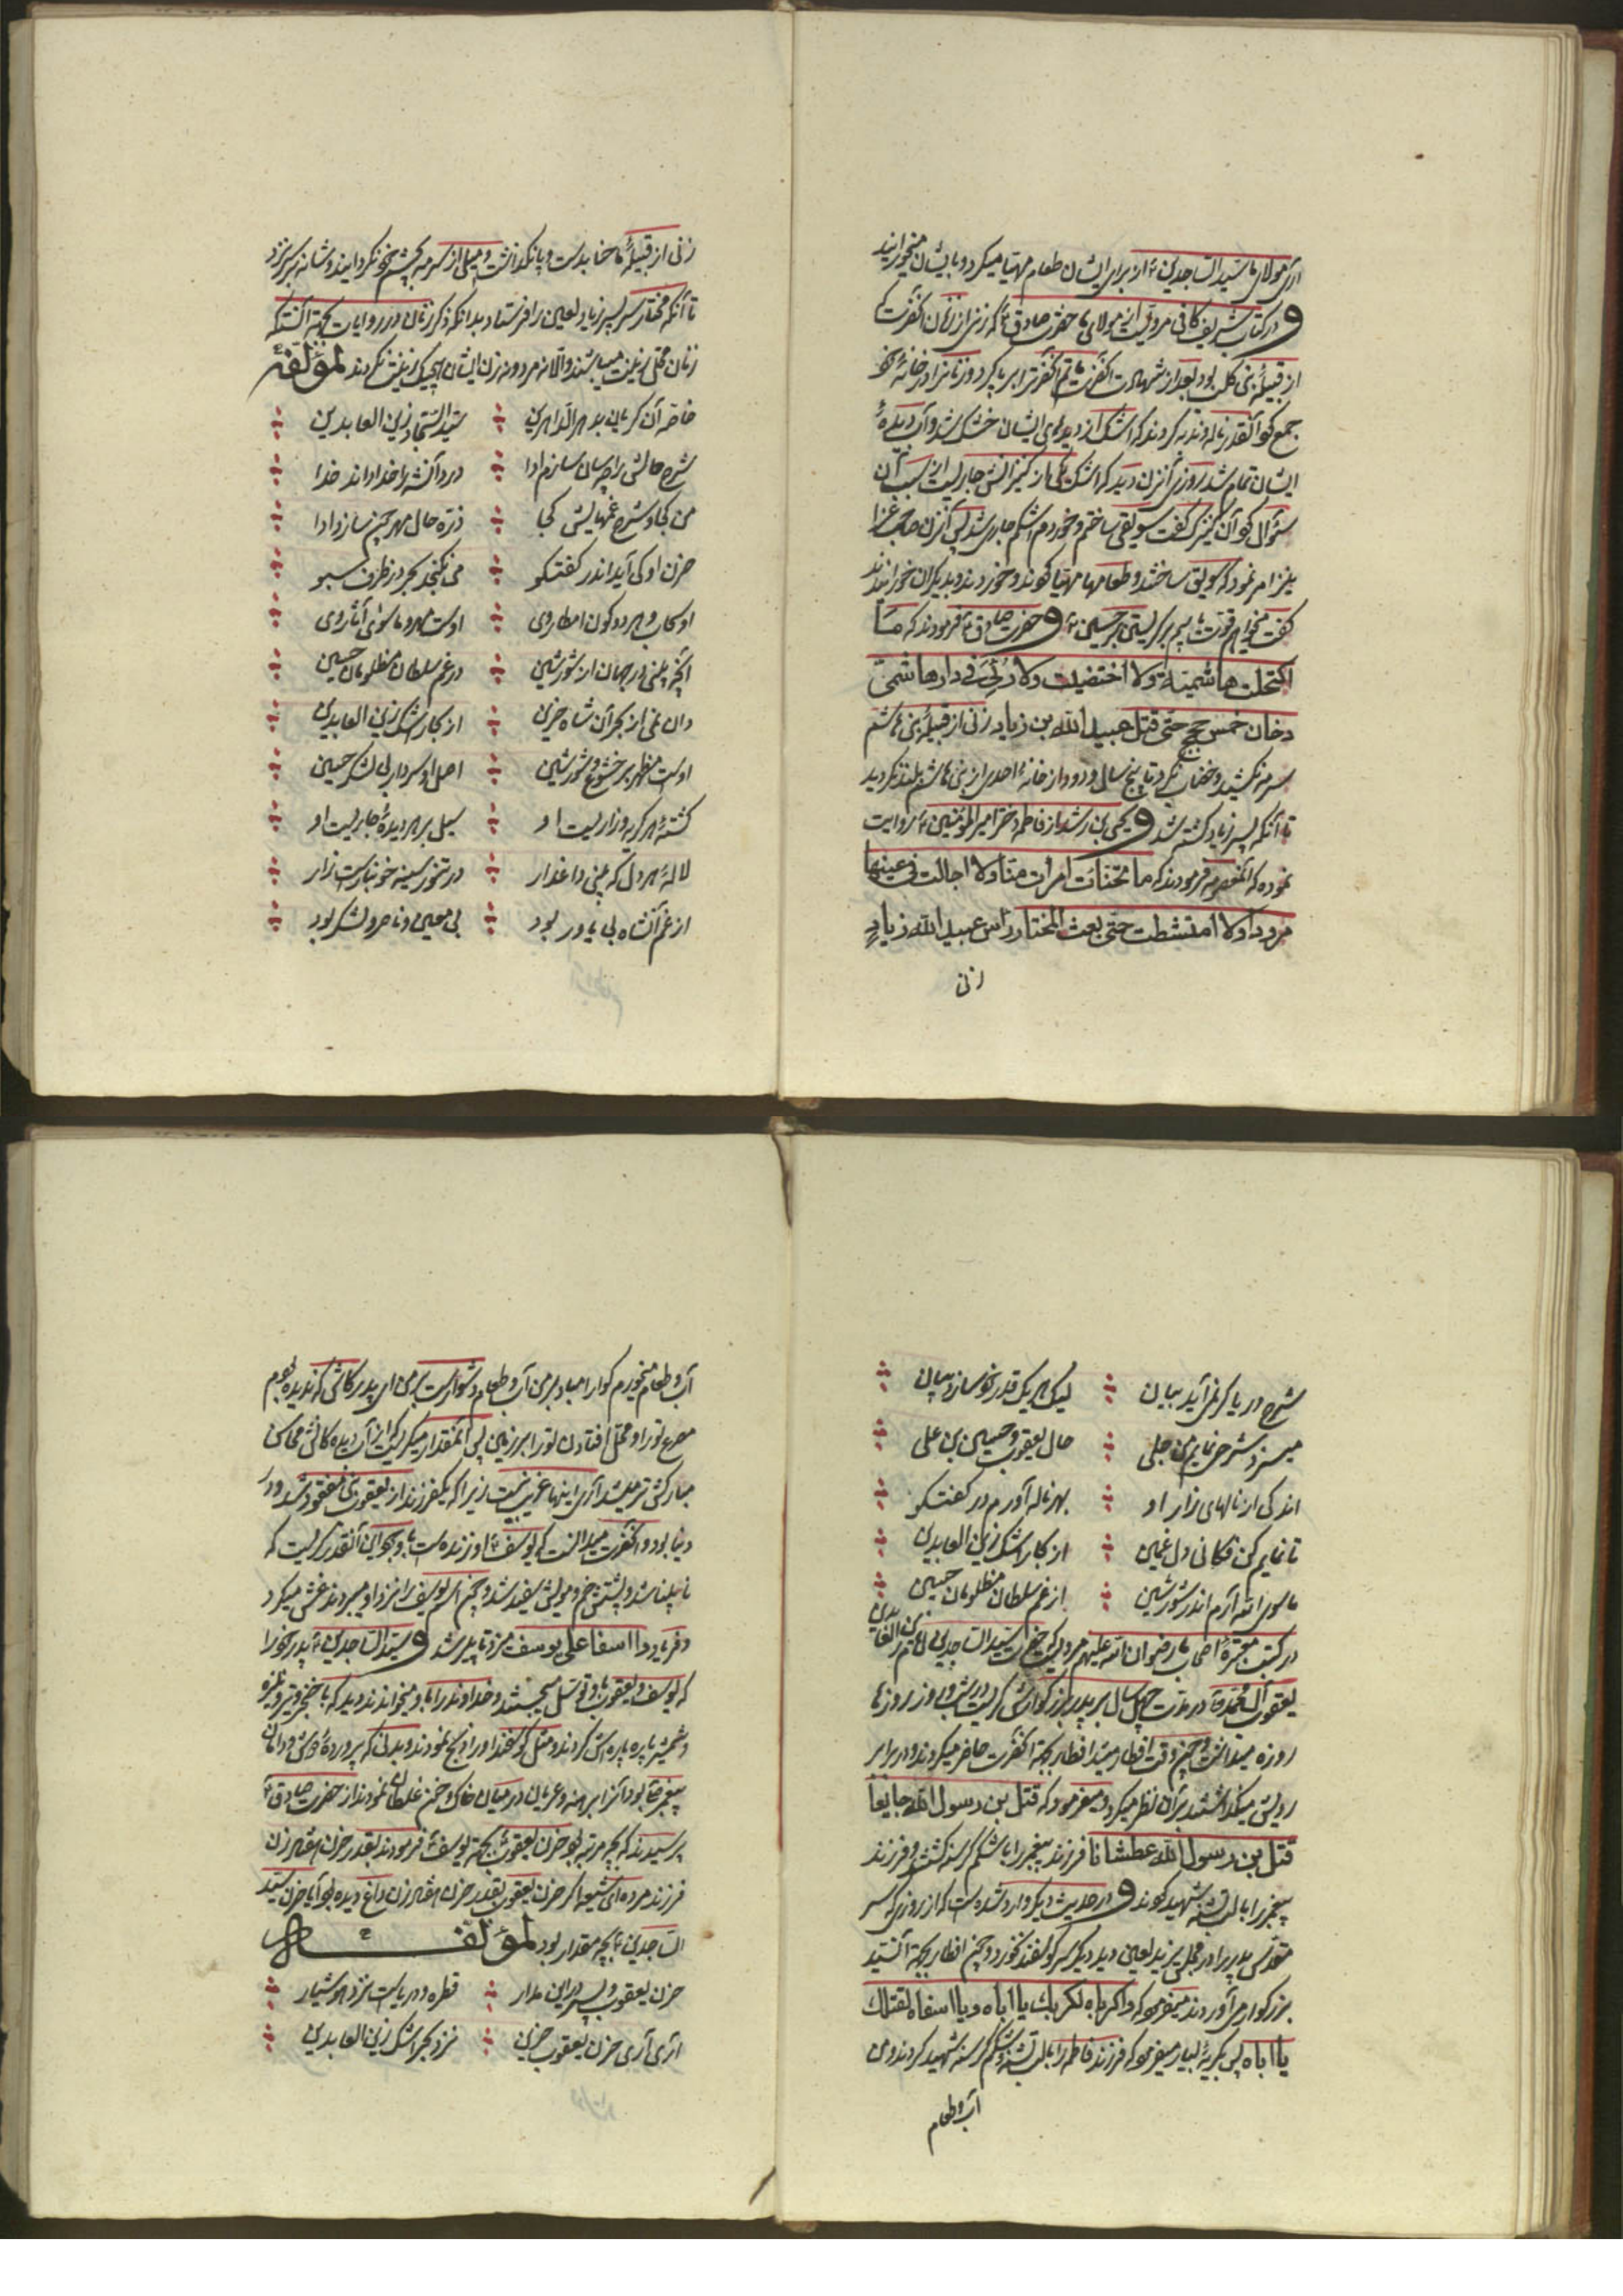 آری مولای ما سید الساجدین ع از برای ایشان طعام مهیا میکرد و بایشان میخورانید
و در کتاب شریف کافی مرویست از مولای ما حضرت صادق ع که زنی از زنان آنحضرت که
از قبیلهٔ بنی کلب بود بعد از شهادت آنحضرت ماتم آنحضرترا برپا کرد و زنانرا در خانهٔ خود
جمع کرد آنقدر ناله و ندبه کردند که اشک از دیدهای ایشان خشک شد و آب دیدهٔ
ایشان تمام شد روزی آنزن دید که اشک یکی از کنیزانش جاریست از سبب آن
سئوال کرد آن کنیزک گفت سویقی ساختم و خوردم اشکم جاری شد پس آنزن صاحب عزا
نیز امر نمود که سویق ساختند و طعامها مهیا کردند و خوردند و بدیگران خورانیدند
گفت میخواهم قوت یابیم بر گریستن بر حسین ع و حضرت صادق ع فرمودند که ما
اکتحلت هاشمیة ولا اختضبت ولا رُئِیَ فی دار هاشمیّ
دخان خمس حجج حتی قتل عبید الله بن زیاد زنی از قبیلهٔ بنی هاشم
سرمه نکشید و خضاب نکرد تا پنج سال و دود از خانهٔ احدی از بنی هاشم بلند نکردید
تا آنکه پسر زیاد کشته شد و یحیی بن راشد از فاطمه دختر امیر المؤمنین ع روایت
نموده که آنمعصومه فرمودند که ما تحنات امرات منا ولا اجالت فی عینها
مرودا ولا امتشطت حتی بعث المختار راس عبید الله زیادٍ
زنی
زنی از قبیلهٔ ما حنا بدست و پا نگذاشت و میلی از سرمه بچشم خود نگردانید و شانه بر سر نزد
تا آنکه مختار سر پسر زیاد لعین را فرستاد بدانکه ذکر زنان در روایات بجهة آنستکه
زنان محل زینت میباشند والّا نه مرد و نه زن ایشان هیچیک زینت نکردند لمؤلّفهٔ
خاصّه آن گریان بدهر الداهرین    سیّد السّجاد زین العابدین
شرح حالش را چسان سازم ادا    درد آنشه را خدا داند خدا
من کجا و شرح غمهایش کجا    ذره حال مهر چون سازد ادا
حزن او کی آید اندر گفتگو    می نگنجد بحر در ظرف سبو
او سحاب و هر دو کون امطار وی    اوست مهر و ماسوی آثار وی
آنچه بینی در جهان از شور و شین    در غم سلطان مظلومان حسین
دان نمی از بحر آن شاه حزین    از بکار اشک زین العابدین
اوست مظهر بر خشوع و شور و شین    اصل او سردار بی لشکر حسین
کشتهٔ هر گریه و زاریست او    سیل بر هر دیدهٔ جاریست او
لالهٔ هر دل که بینی داغدار    در تنور سینه خونبارست زار
از غم آنشاه بی یاور بود    بی معین و ناصر و لشکر بود
شرح دریا گر نمی آید بیان    لیک هر یک قدر خود سازد بیان
میسزد شرحی نمایم من جلی    حال یعقوب و حسین بن علی
اندکی از نالهای زار او    بهر ناله آورم در گفتگو
تا نمایم کن فکانی دل غمین    از بکار اشک زین العابدین
ماسوی الله آرم اندر شور و شین    از غم سلطان مظلومان حسین
در کتب معتبرهٔ اصحاب ما رضوان الله علیهم مرویست که حضرت سید الساجدین امام زین العابدین
یعقوب آل محمد ص در مدت چهل سال بر پدر بزرگوارش گریست در شب و روز روزها
روزه میداشت و چون وقت افطار میشد افطار بجهة آنحضرت حاضر میکردند و در برابر
رویش میگذاشتند بر آن نظر میکرد و میفرمود که قتل بن رسول الله جایعا
قتل بن رسول الله عطشانا فرزند پیغمبر را با شکم گرسنه کشتند و فرزند
پیغمبر را با لب تشنه شهید کردند و در حدیث دیگر وارد شده است که از روزی که سر
مقدس پدر را در مجلس یزید لعین دید دیگر سر گوسفند نخورد و چون افطار بجهة آنسید
بزرگوار می آوردند میفرمود که واکرباه لکربک یا اباه و یا اسفاه لقتلک
یا اباه پس بگریهٔ بسیار میفرمود که فرزند فاطمه را با لب تشنه و شکم گرسنه شهید کردند و من
آب و طعام
آب و طعام میخورم گوارا مباد بر من آب و طعام دشوارست بر من ای پدر کاش که ندیده بودم
مصرع تو را و محل افتادن تو را بر زمین پس آنمقدار میگریست که از آب دیده کانش محاسن
مبارکش تر میشد آری اینها غریب نیست زیرا که یکفرزند از یعقوب نبی مفقود شد و در
دنیا بود و آنحضرت میدانست که یوسف ع او زنده است با وجود این آنقدر گریست که
نابینا شد و پشتش خم و مویش سفید شد و چون اسم یوسف را نزد او میبردند غش میکرد
و فریاد وا اسفا علی یوسف میزد تا پیر شد و سید الساجدین ع پدر خود را
که یوسف و یعقوب باو توسل میجستند و خداوند را باو میخواندند دید که با خنجر و تیر و نیزه
و شمشیر پاره پاره اش کردند و مثل گوسفند او را ذبح نمودند و بدنی که پروردهٔ دوش و دامان
پیغمبر ص بود آنرا برهنه و عریان در میان خاک و خون غلطان نمودند از حضرت صادق ع
پرسیدند که بچه مرتبه بود حزن یعقوب بجهة یوسف فرمودند بقدر حزن هفتاد زن
فرزند مرده ای شیعه اگر حزن یعقوب بقدر حزن هفتاد زن داغ دیده بود آیا حزن سید
الساجدین ع بچه مقدار بود لمؤلفه
حزن یعقوب و پسر در این مدار    قطره و دریاست نزد هوشیار
آری آری حزن یعقوب حزین    نزد بحر اشک زین العابدین